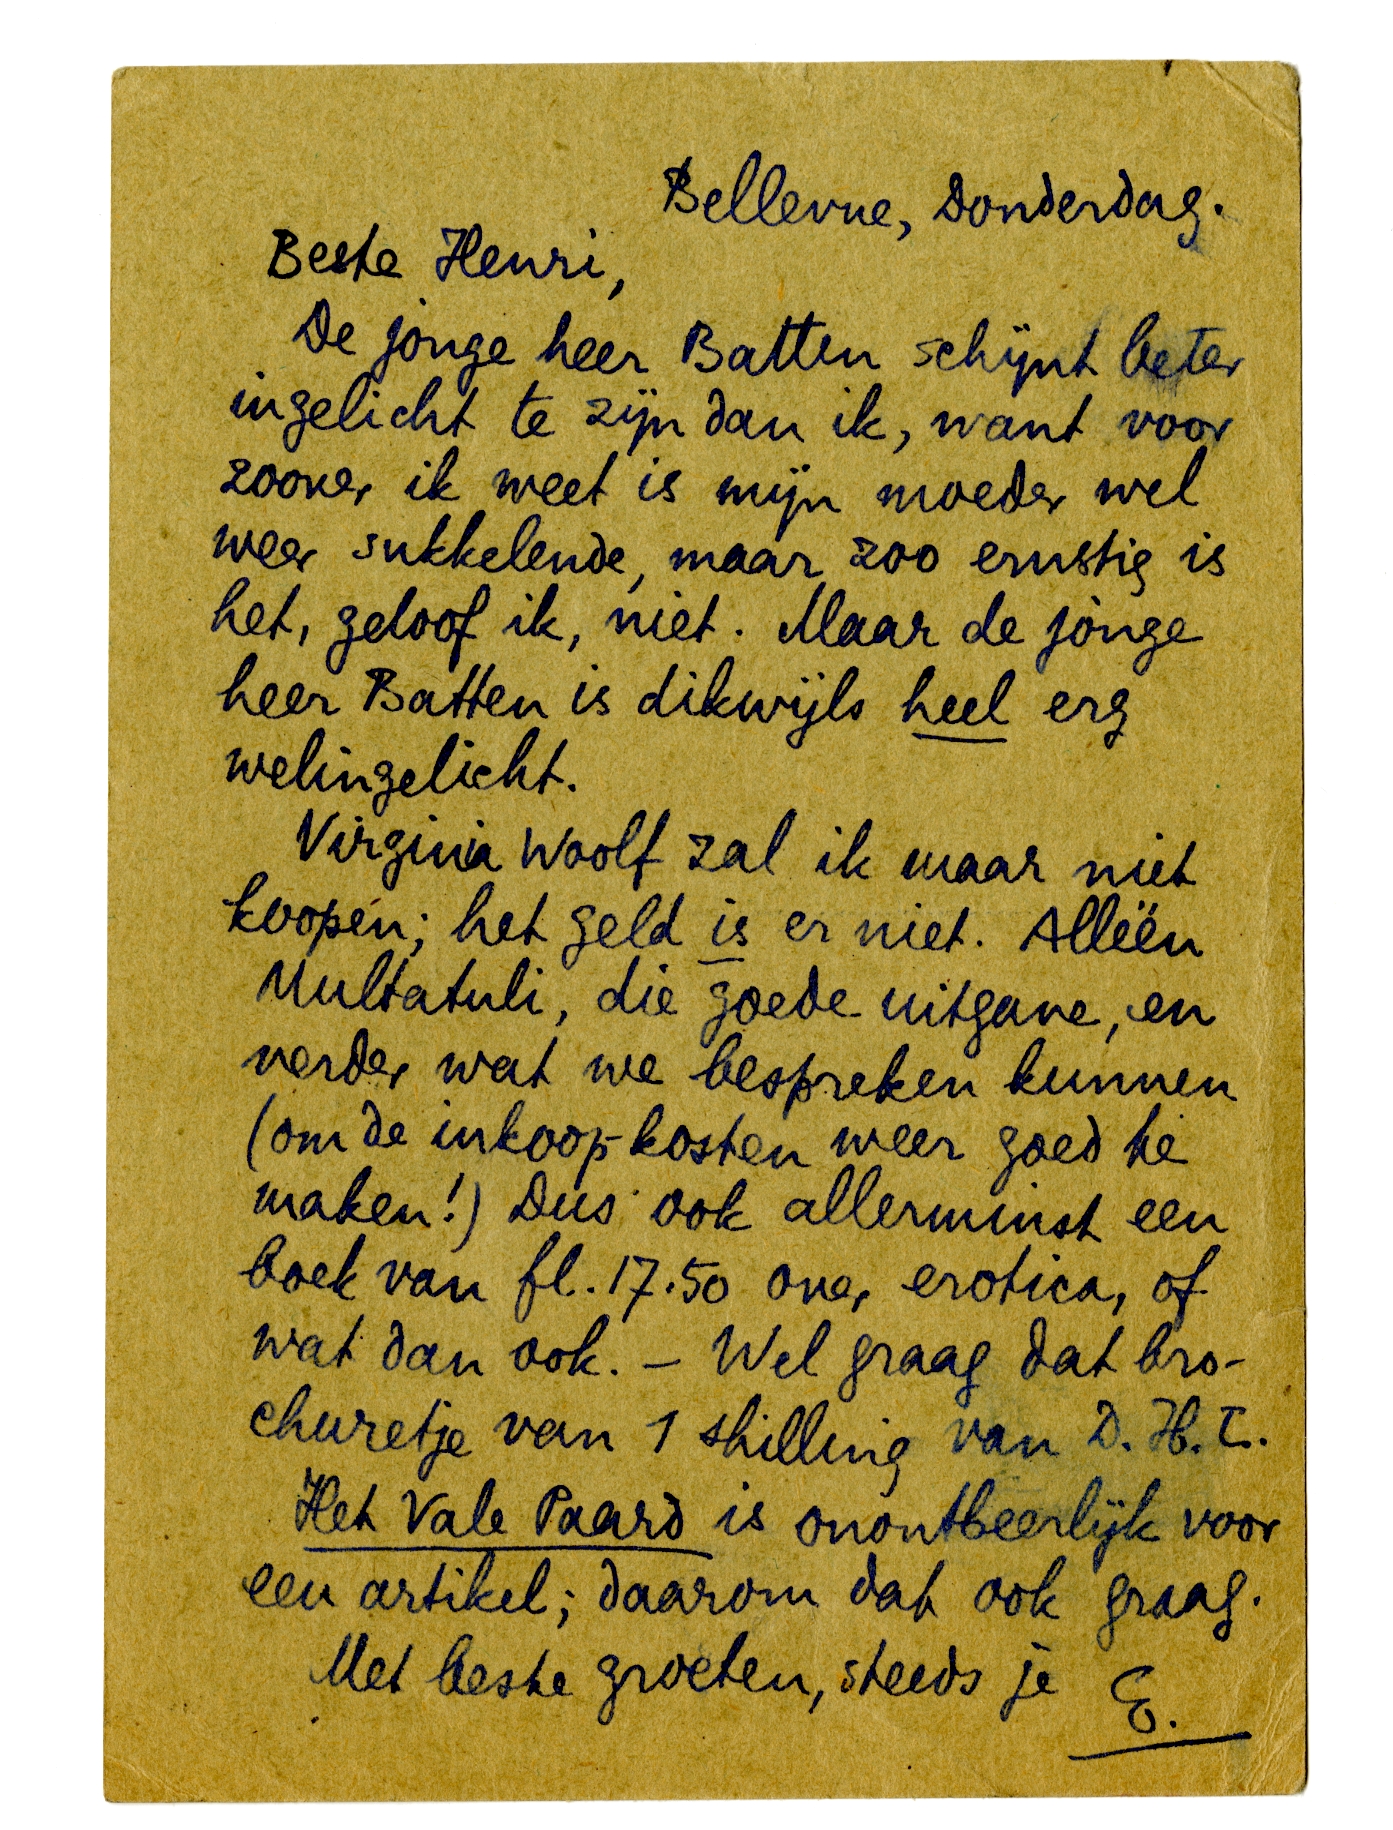 Bellevue, Donderdag.
Beste Henri,
De jonge heer Batten schijnt beter
ingelicht te zijn dan ik, want voor
zoover ik weet is mijn moeder wel
weer sukkelende, maar zoo ernstig is
het, geloof ik, niet. Maar de jonge
heer Batten is dikwijls heel erg
welingelicht.
Virginia Woolf zal ik maar niet
koopen; het geld is er niet. Alléén
Multatuli, die goede uitgave, en
verder wat we bespreken kunnen
(om de inkoop-kosten weer goed te
maken!) Dus ook allerminst een
boek van fl. 17.50 over erotica, of
wat dan ook. — Wel graag dat bro-
churetje van 1 shilling van D. H. L.
Het Vale Paard is onontbeerlijk voor
een artikel; daarom dat ook graag.
Met beste groeten, steeds je E.